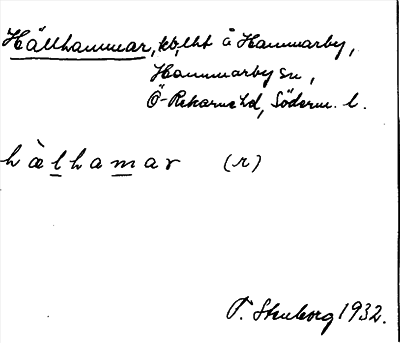 Hällhammar, lht å Hammarby,
Hammarby sn,
Ö-Rekarne hd, Söderm. l.
hæ̀lhamar (r)
1932.